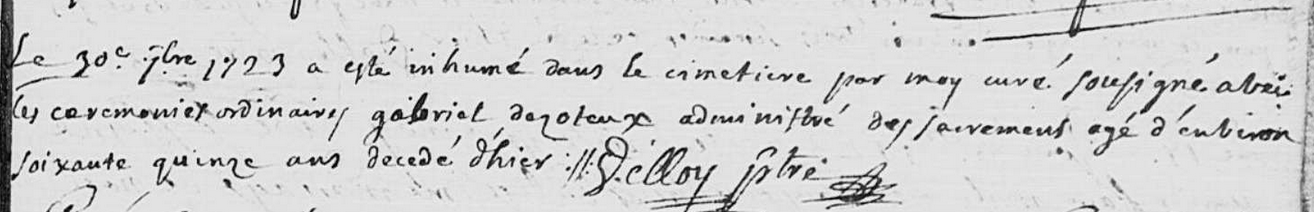 Le 30e 7bre 1723 a esté inhumé dans le cimetiere par moy curé sousigné avec
les ceremonies ordinaires gabriel dezoteux administré des sacremens agé d'environ
soixante quinze ans decedé d'hier :||: Delloy ptre